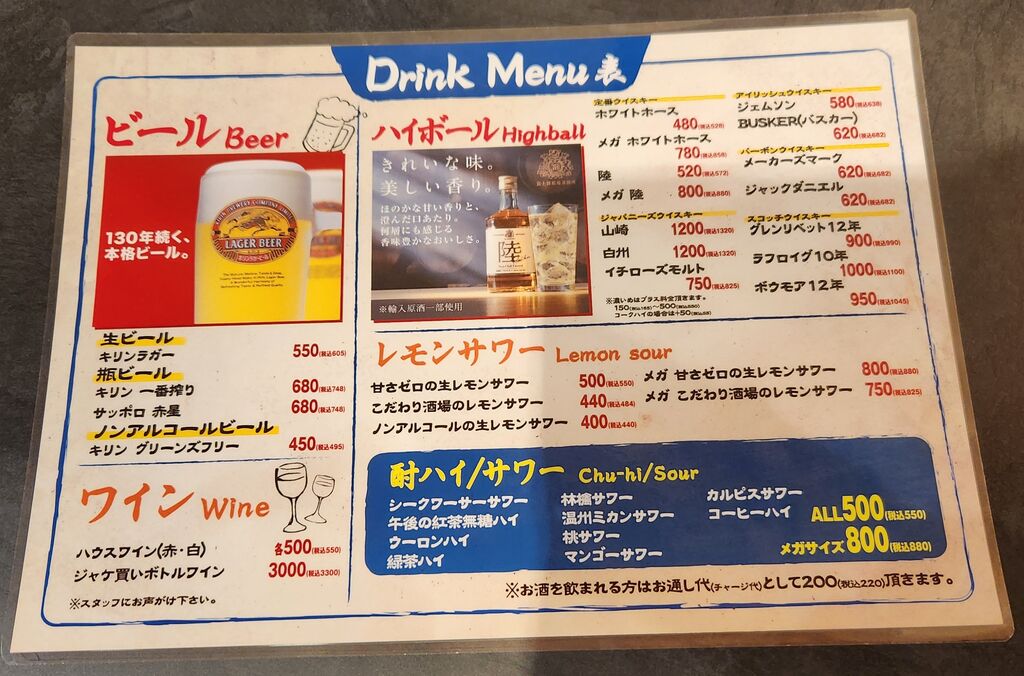 Drink Menu 表
ビール Beer
130年続く、
本格ビール。
LAGER BEER
生ビール
キリンラガー 550(税込605)
瓶ビール
キリン 一番搾り 680(税込748)
サッポロ 赤星 680(税込748)
ノンアルコールビール
キリン グリーンズフリー 450(税込495)
ワイン Wine
ハウスワイン(赤・白) 各500(税込550)
ジャケ買いボトルワイン 3000(税込3300)
※スタッフにお声がけ下さい。
ハイボール Highball
きれいな味。
美しい香り。
ほのかな甘い香りと、
澄んだ口あたり。
何層にも感じる
香味豊かなおいしさ。
陸
※輸入原酒一部使用
定番ウイスキー
ホワイトホース
480(税込528)
メガ ホワイトホース
780(税込858)
陸 520(税込572)
メガ 陸 800(税込880)
ジャパニーズウイスキー
山崎 1200(税込1320)
白州 1200(税込1320)
イチローズモルト
750(税込825)
※濃いめはプラス料金頂きます。
150(税込165)~500(税込550)
コークハイの場合は+50(税込55)
アイリッシュウイスキー
ジェムソン 580(税込638)
BUSKER(バスカー)
620(税込682)
バーボンウイスキー
メーカーズマーク
620(税込682)
ジャックダニエル
620(税込682)
スコッチウイスキー
グレンリベット12年
900(税込990)
ラフロイグ10年
1000(税込1100)
ボウモア12年
950(税込1045)
レモンサワー Lemon sour
甘さゼロの生レモンサワー 500(税込550)
こだわり酒場のレモンサワー 440(税込484)
ノンアルコールの生レモンサワー 400(税込440)
メガ 甘さゼロの生レモンサワー 800(税込880)
メガ こだわり酒場のレモンサワー 750(税込825)
酎ハイ/サワー Chu-hi/Sour
シークワーサーサワー
午後の紅茶無糖ハイ
ウーロンハイ
緑茶ハイ
林檎サワー
温州ミカンサワー
桃サワー
マンゴーサワー
カルピスサワー
コーヒーハイ
ALL500(税込550)
メガサイズ800(税込880)
※お酒を飲まれる方はお通し代(チャージ代)として200(税込220)頂きます。